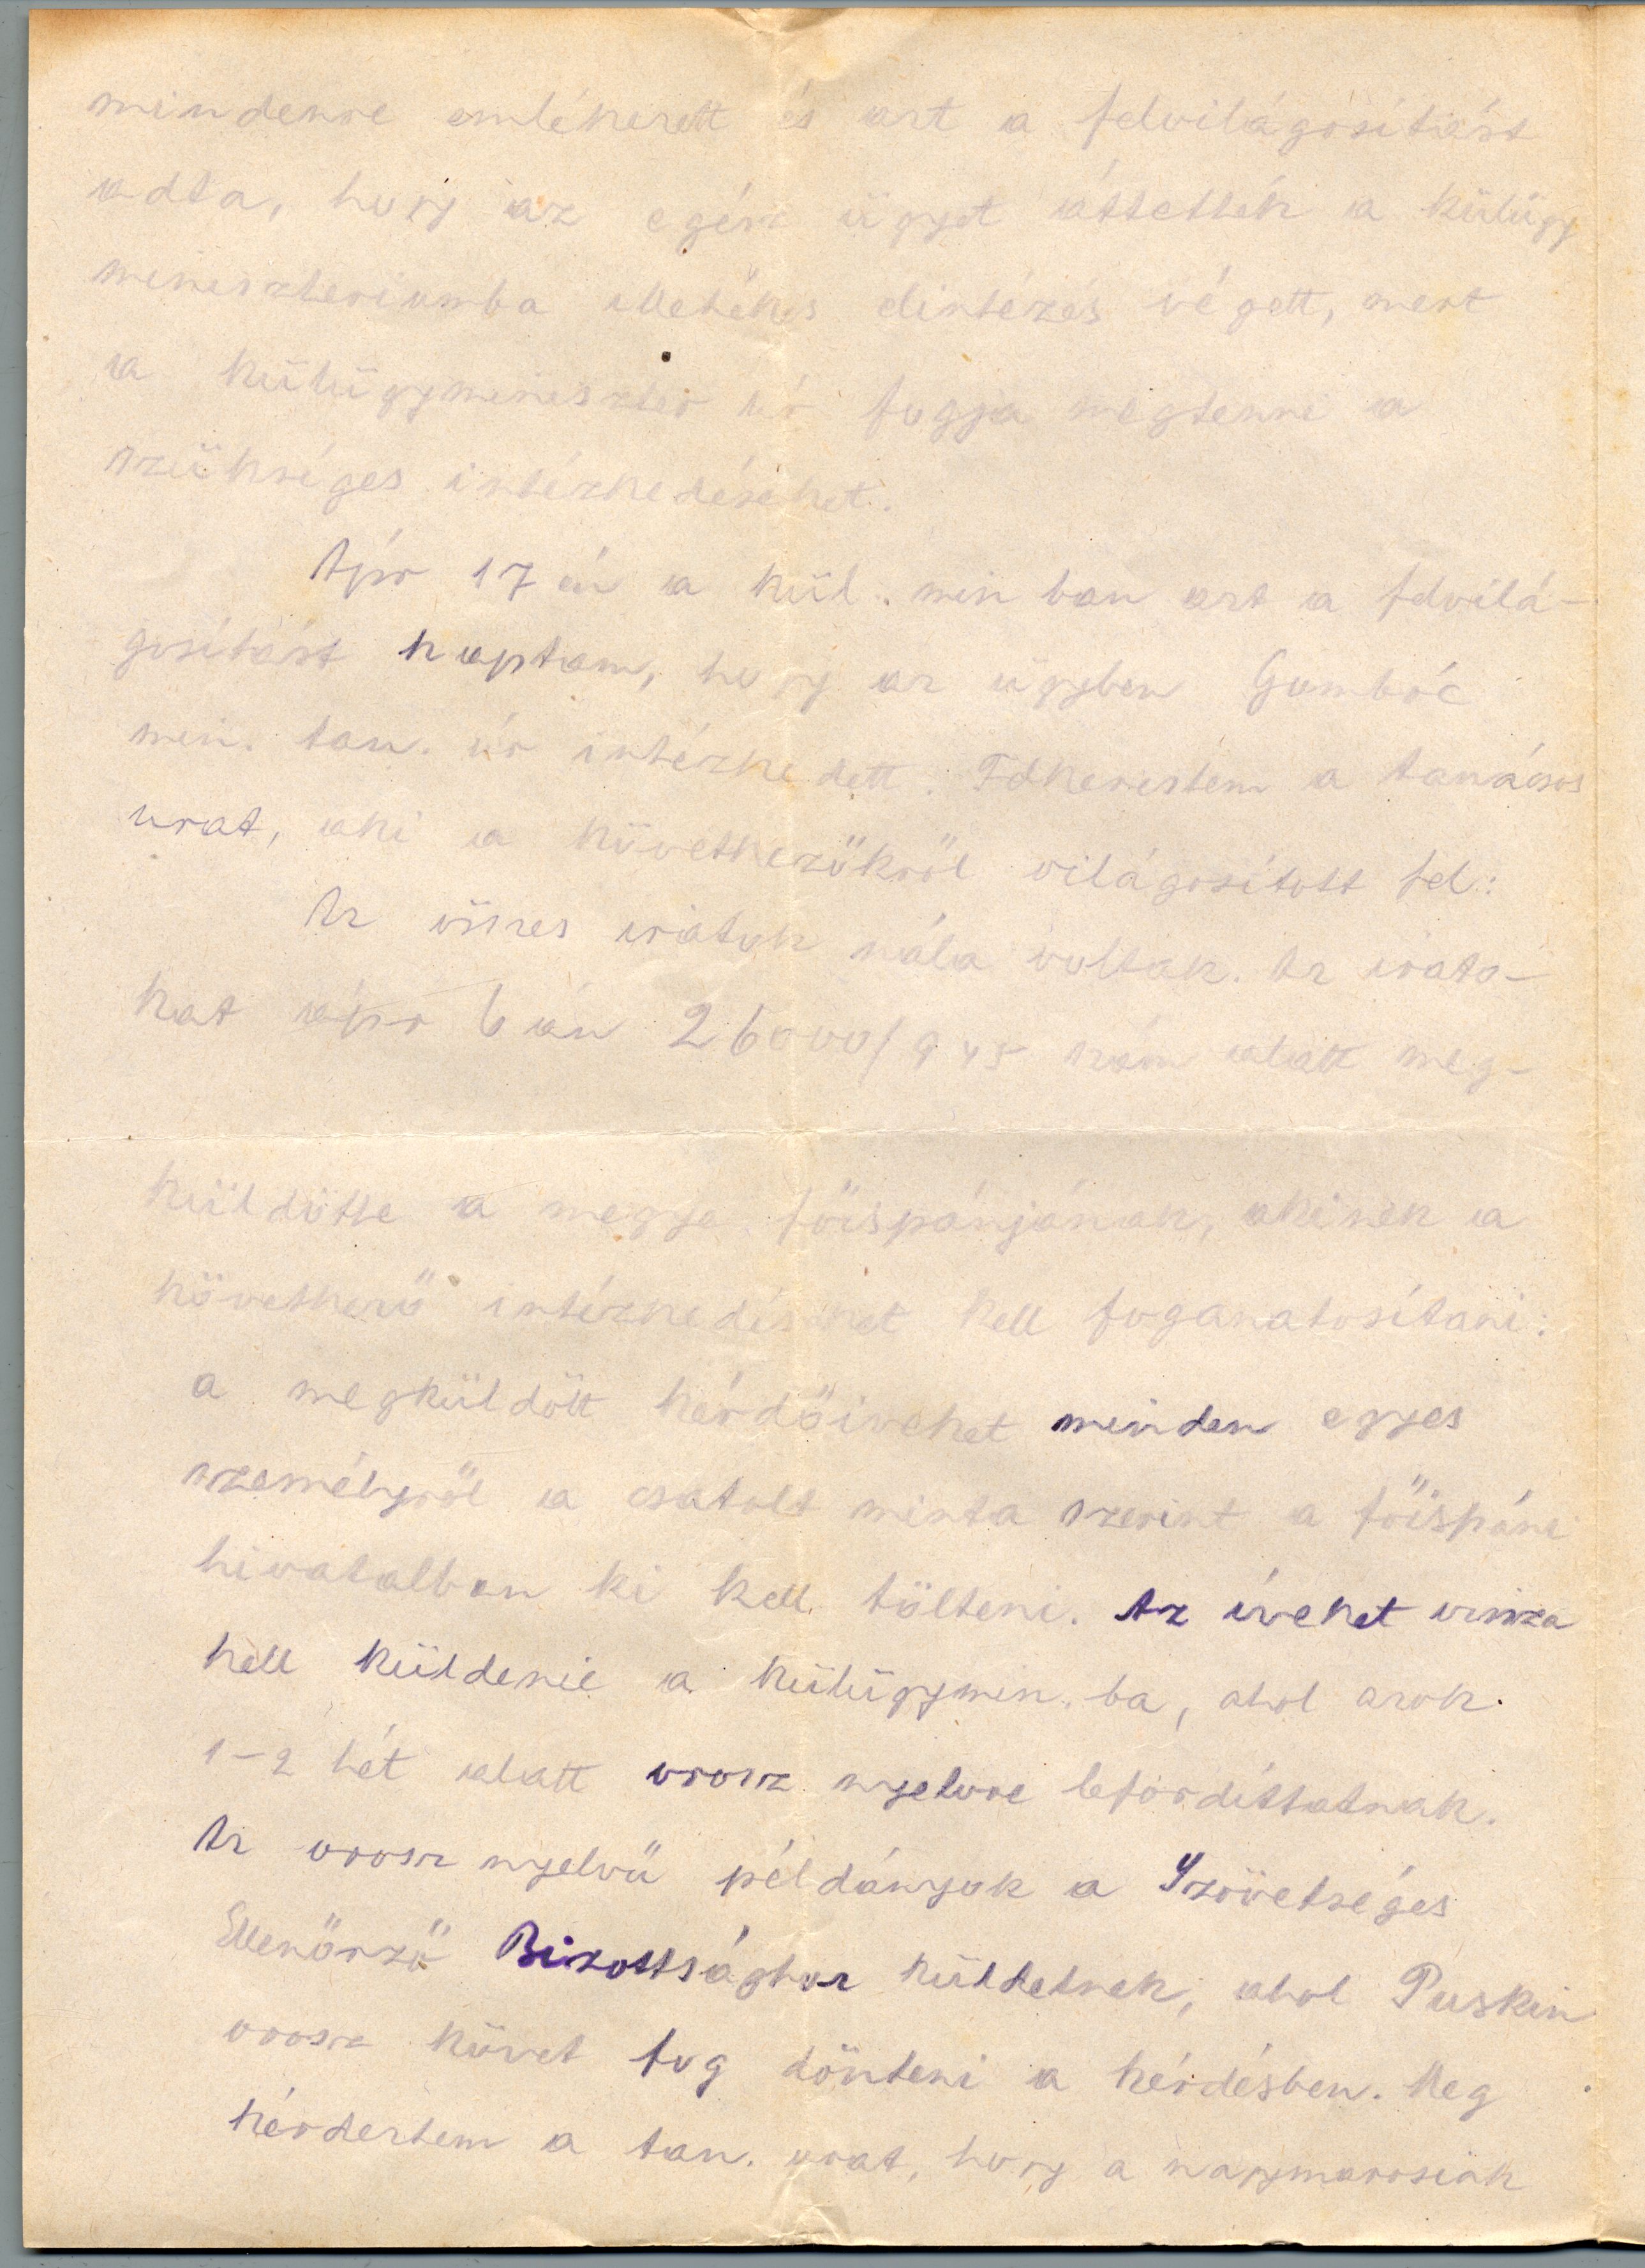 mindenre emlékezett és azt a felvilágosítást
adta, hogy az egész ügyet áttették a külügy
miniszteriumba illetékes elintézés végett, mert
a külügyminiszter úr fogja megtenni a
szükséges intézkedéseket.
Ápr 17 én a kül. min ban azt a felvilá-
gosítást kaptam, hogy az ügyben Gombóc
min. tan. úr intézkedett. Felkerestem a tanácsos
urat, aki a következőkről világosított fel:
Az összes iratok nála voltak. Az irato-
kat ápr 6 án 26000/945 szám alatt meg-
küldötte a megye főispánjának, akinek a
következő intézkedéseket kell foganatosítani:
a megküldött kérdőiveket minden egyes
személyről a csatolt minta szerint a főispáni
hivatalban ki kell tölteni. Az íveket vissza
kell küldenie a külügymin. ba, ahol azok
1-2 hét alatt orosz nyelvre lefordíttatnak.
Az orosz nyelvű példányok a Szövetséges
Ellenőrző Bizottsághoz küldetnek, ahol Puskin
orosz követ fog dönteni a kérdésben. Meg
kérdeztem a tan. urat, hogy a nagymarosiak